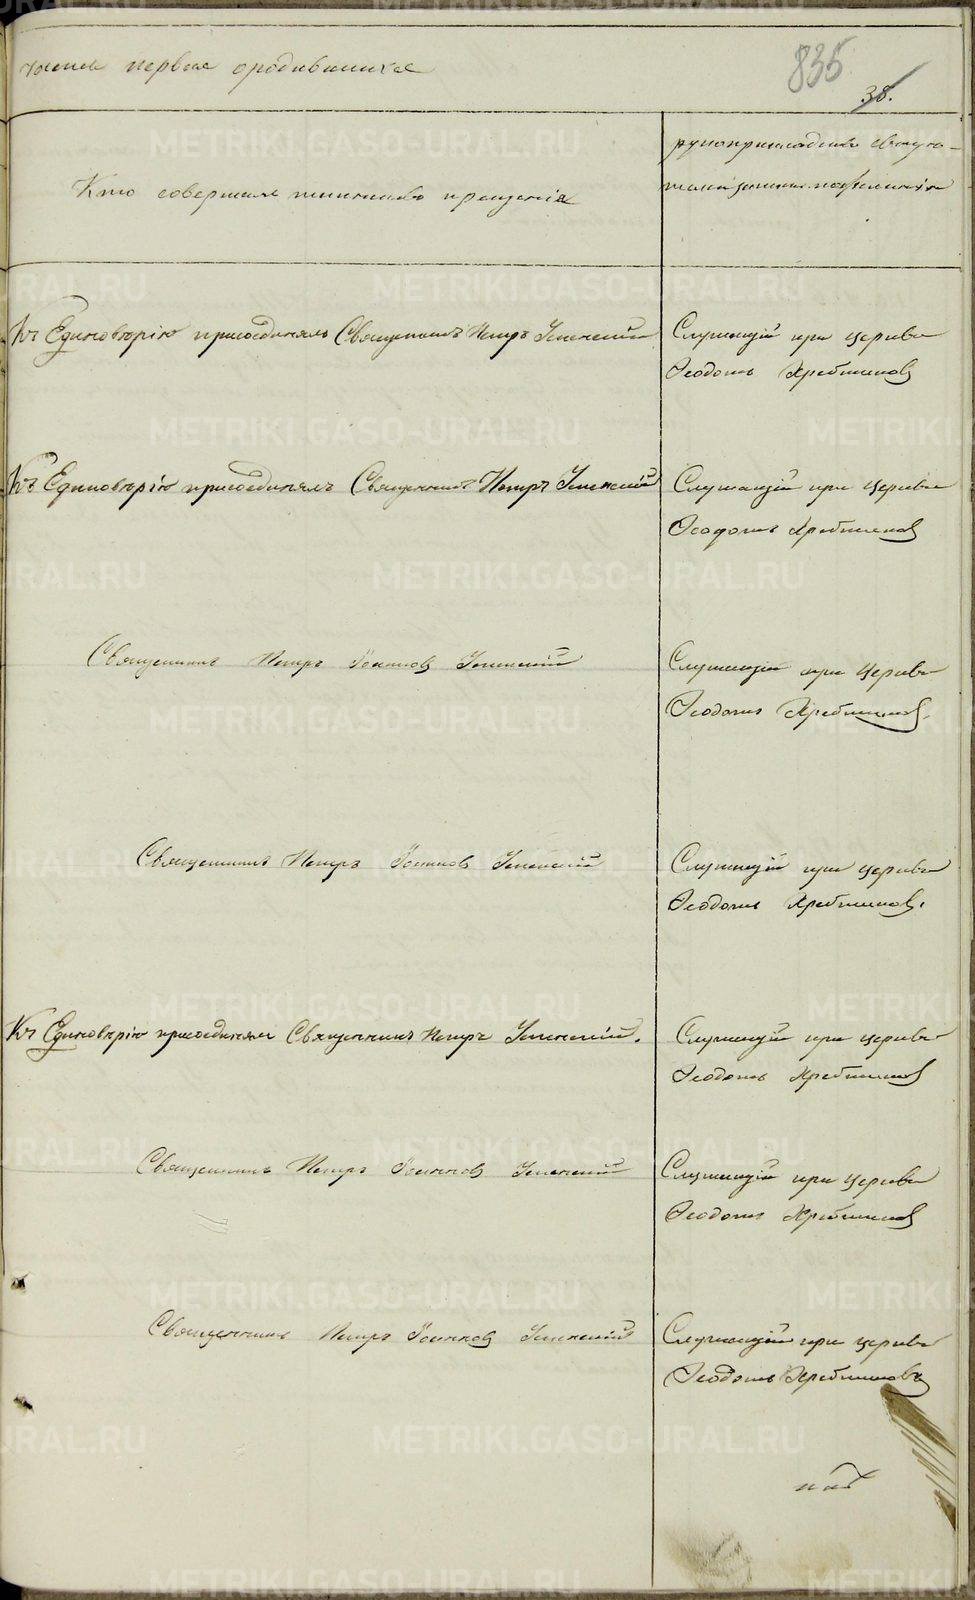 части первая о родившихся
835
38.
Кто совершалъ таинство крещенія
рукоприкладство свидѣтелей записи по желанію
Къ Единовѣрію присоединялъ Священникъ Петръ Успенскій
Служащій при церкви
Ѳеодотъ Хребтиковъ
Къ Единовѣрію присоединялъ Священникъ Петръ Успенскій
Служащій при церкви
Ѳеодотъ Хребтиковъ
Священникъ Петръ Іоанновъ Успенскій
Служащій при церкви
Ѳеодотъ Хребтиковъ.
Священникъ Петръ Іоанновъ Успенскій
Служащій при церкви
Ѳеодотъ Хребтиковъ.
Къ Единовѣрію присоединялъ Священникъ Петръ Успенскій.
Служащій при церкви
Ѳеодотъ Хребтиковъ
Священникъ Петръ Іоанновъ Успенскій
Служащій при церкви
Ѳеодотъ Хребтиковъ
Священникъ Петръ Іоанновъ Успенскій
Служащій при церкви
Ѳеодотъ Хребтиковъ
METRIKI.GASO-URAL.RU